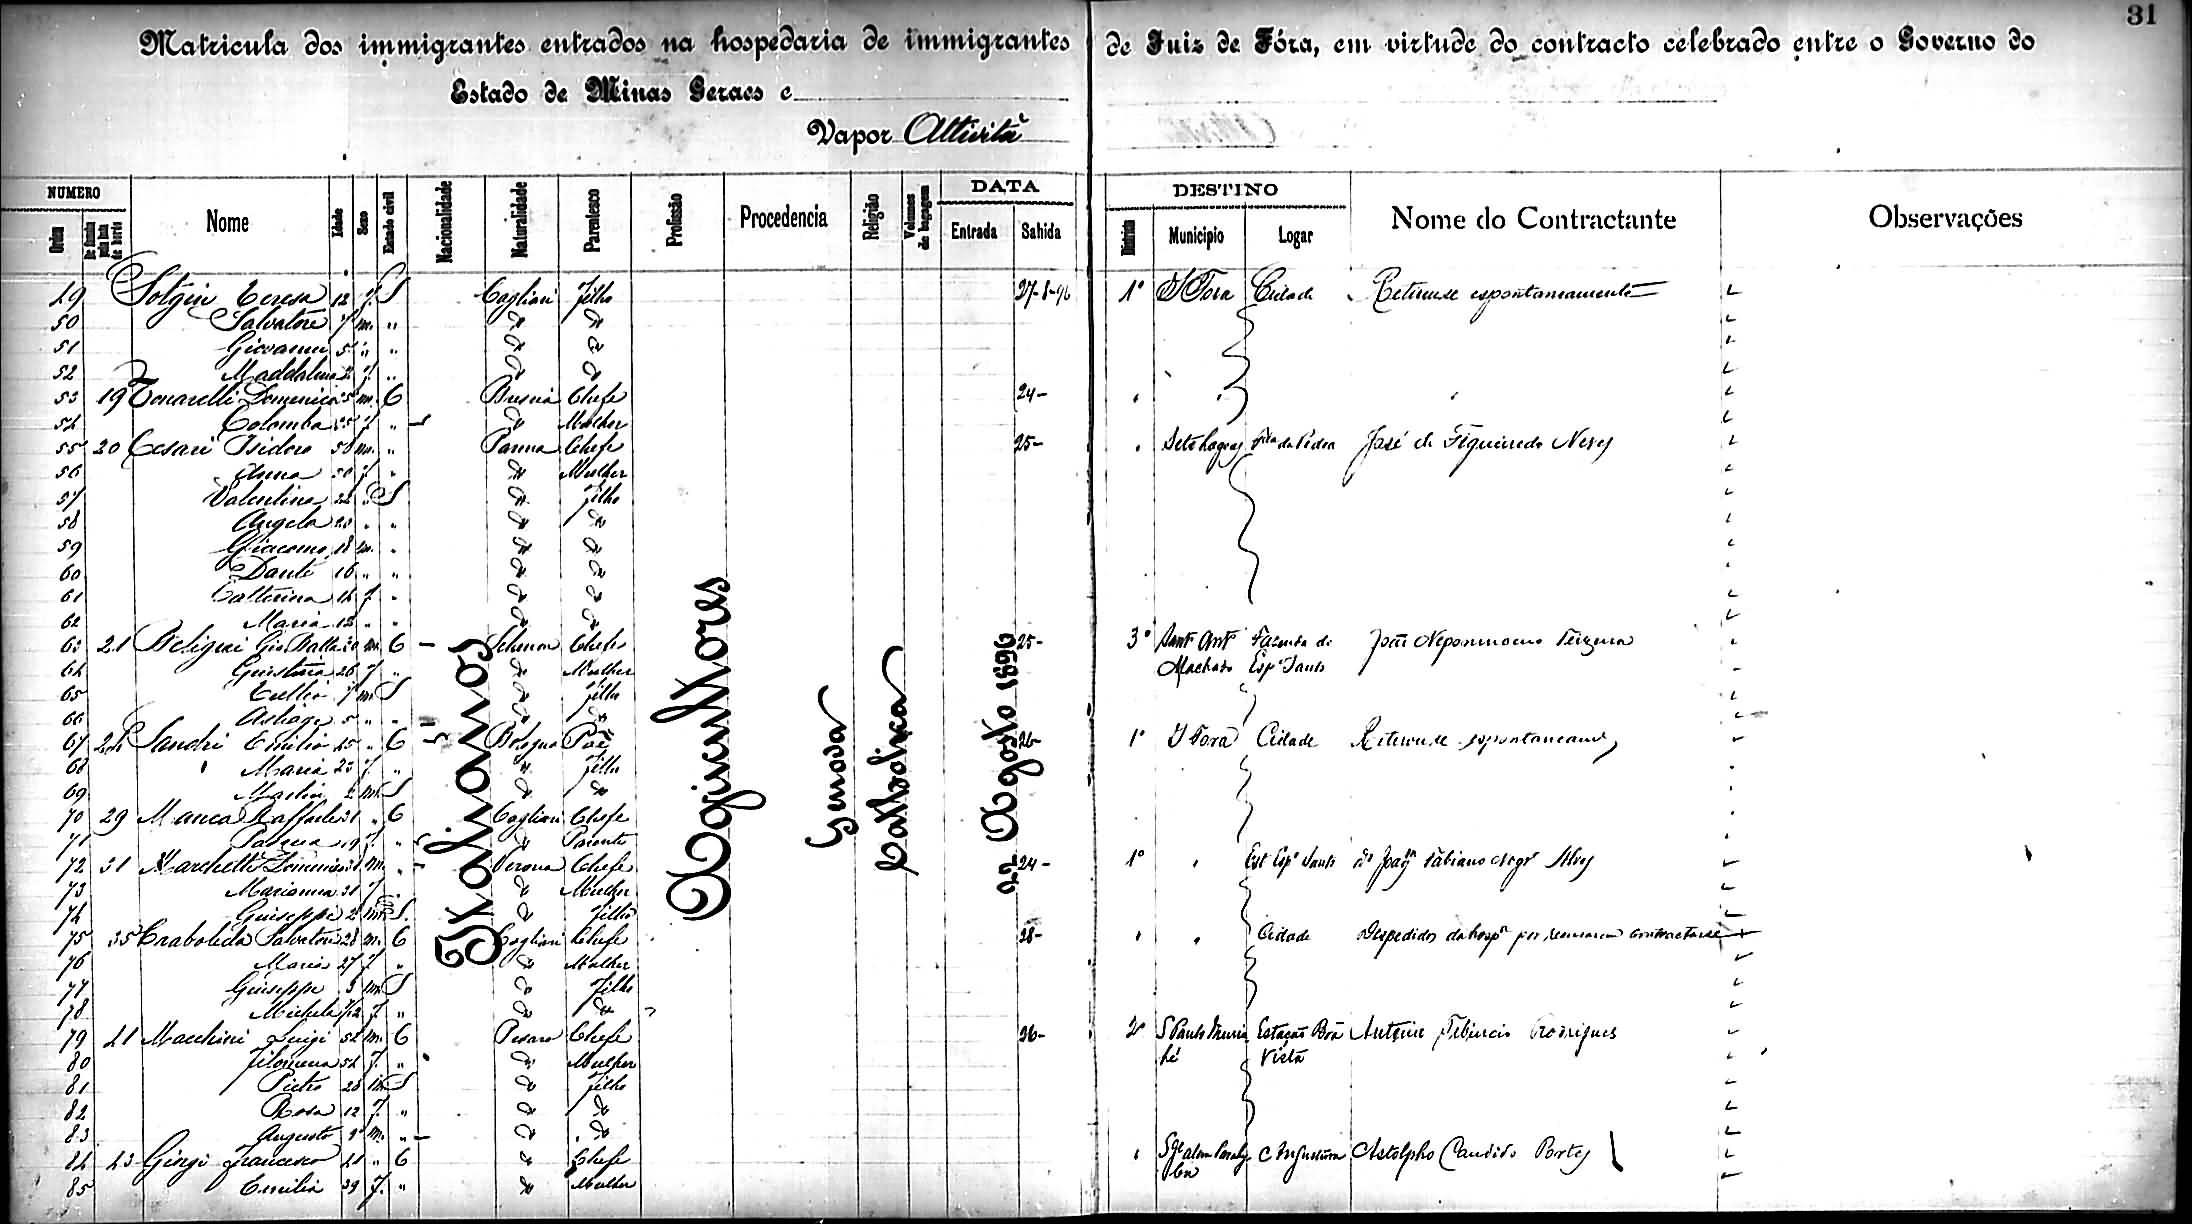 31
Matricula dos immigrantes entrados na hospedaria de immigrantes de Juiz de Fóra, em virtude do contracto celebrado entre o Governo do
Estado de Minas Geraes e
Vapor Attività
NUMERO Nome Idade Sexo Estado civil Nacionalidade Naturalidade Parentesco Profissão Procedencia Religião Volumes de bagagem DATA DESTINO Nome do Contractante Observações
Ordem Entrada Sahida Districto Municipio Logar
Italianos Agricultores Genova Catholica 22 Agosto 1896
49 Sotgiu Teresa 12 f. S Cagliari Filho 27-8-96 1º J Fora Cidade Retirouse espontaneamente
50 Salvatore 7 m. " " "
51 Giovanni 5 " " " "
52 Maddalena 2 f. " " "
53 19 Tonarelli Domenico m. C Chefe 24-
54 Colomba 25 f. " " Mulher
55 20 Cesari Isidoro 58 m. " Parma Chefe 25- Sete Lagoas da Pedra José de Figueiredo Neves
56 Anna 50 f. " " Mulher
57 Valentina 22 " S " Filho
58 Angela 20 " " " "
59 Giacomo 18 m. " " "
60 Dante 16 " " " "
61 Catterina 14 f. " " "
62 Maria 12 " " " "
63 21 Gio Batta m. C Chefe 25- 3º Santo Antº Machado Fazenda do Espº Santo João Nepomuceno Teixeira
64 26 f. " " Mulher
65 Tullio 7 m. S " Filho
66 5 " " " "
67 24 Sandri Emilio 45 " C Pae 26- 1º J Fora Cidade Retirouse espontaneamᵉ
68 Maria 23 f. " " Filho
69 2 m. S " "
70 29 Manca Raffaele 31 " C Cagliari Chefe
71 19 f. " " Parente
72 31 Marchetti 31 m. " Verona Chefe 24- 1º " Est Espº Santo
73 Marianna 31 f. " " Mulher
74 Giuseppe 2 m. S. " Filho
75 35 Salvatore 28 m. C Cagliari Chefe 28- " " Cidade Despedidos da hospª por recusarem contractarse
76 Maria 27 f. " " Mulher
77 Giuseppe 3 m. S " Filho
78 Michela f. " " "
79 41 Macchini Luigi 52 m. C Pesaro Chefe 26- 2º S Paulo Muriahé Estação Boa Vista Antonio Tiburcio Rodrigues
80 Filomena 54 f. " " Mulher
81 Pietro 28 m. S " Filho
82 Rosa 12 f. " " "
83 Augusto 9 m. " " "
84 43 Giorgi Francesco 41 " C " Chefe " Angustura Astolpho Candido Portes
85 Emilia 39 f. " " Mulher